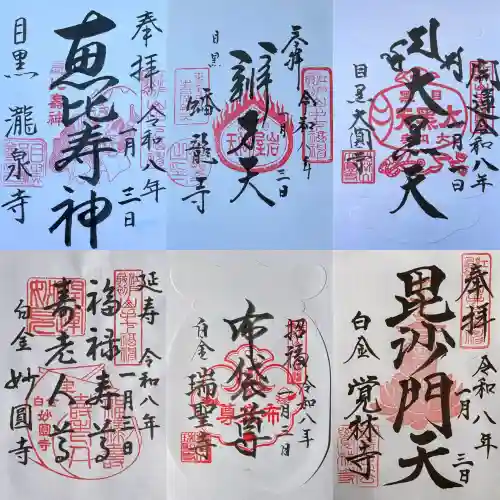 奉拝
令和八年
一月三日
恵比寿神
目黒 瀧泉寺
奉拝
令和八年
一月三日
辨才天
目黒 蟠龍寺
開運
令和八年
一月
大黒天
目黒大圓寺
延寿
令和八年
一月
日
福禄寿尊
寿老人尊
白金 妙圓寺
招福
令和八年
日
布袋尊
白金 瑞聖寺
奉拝
令和八年
一月三日
毘沙門天
白金 覚林寺